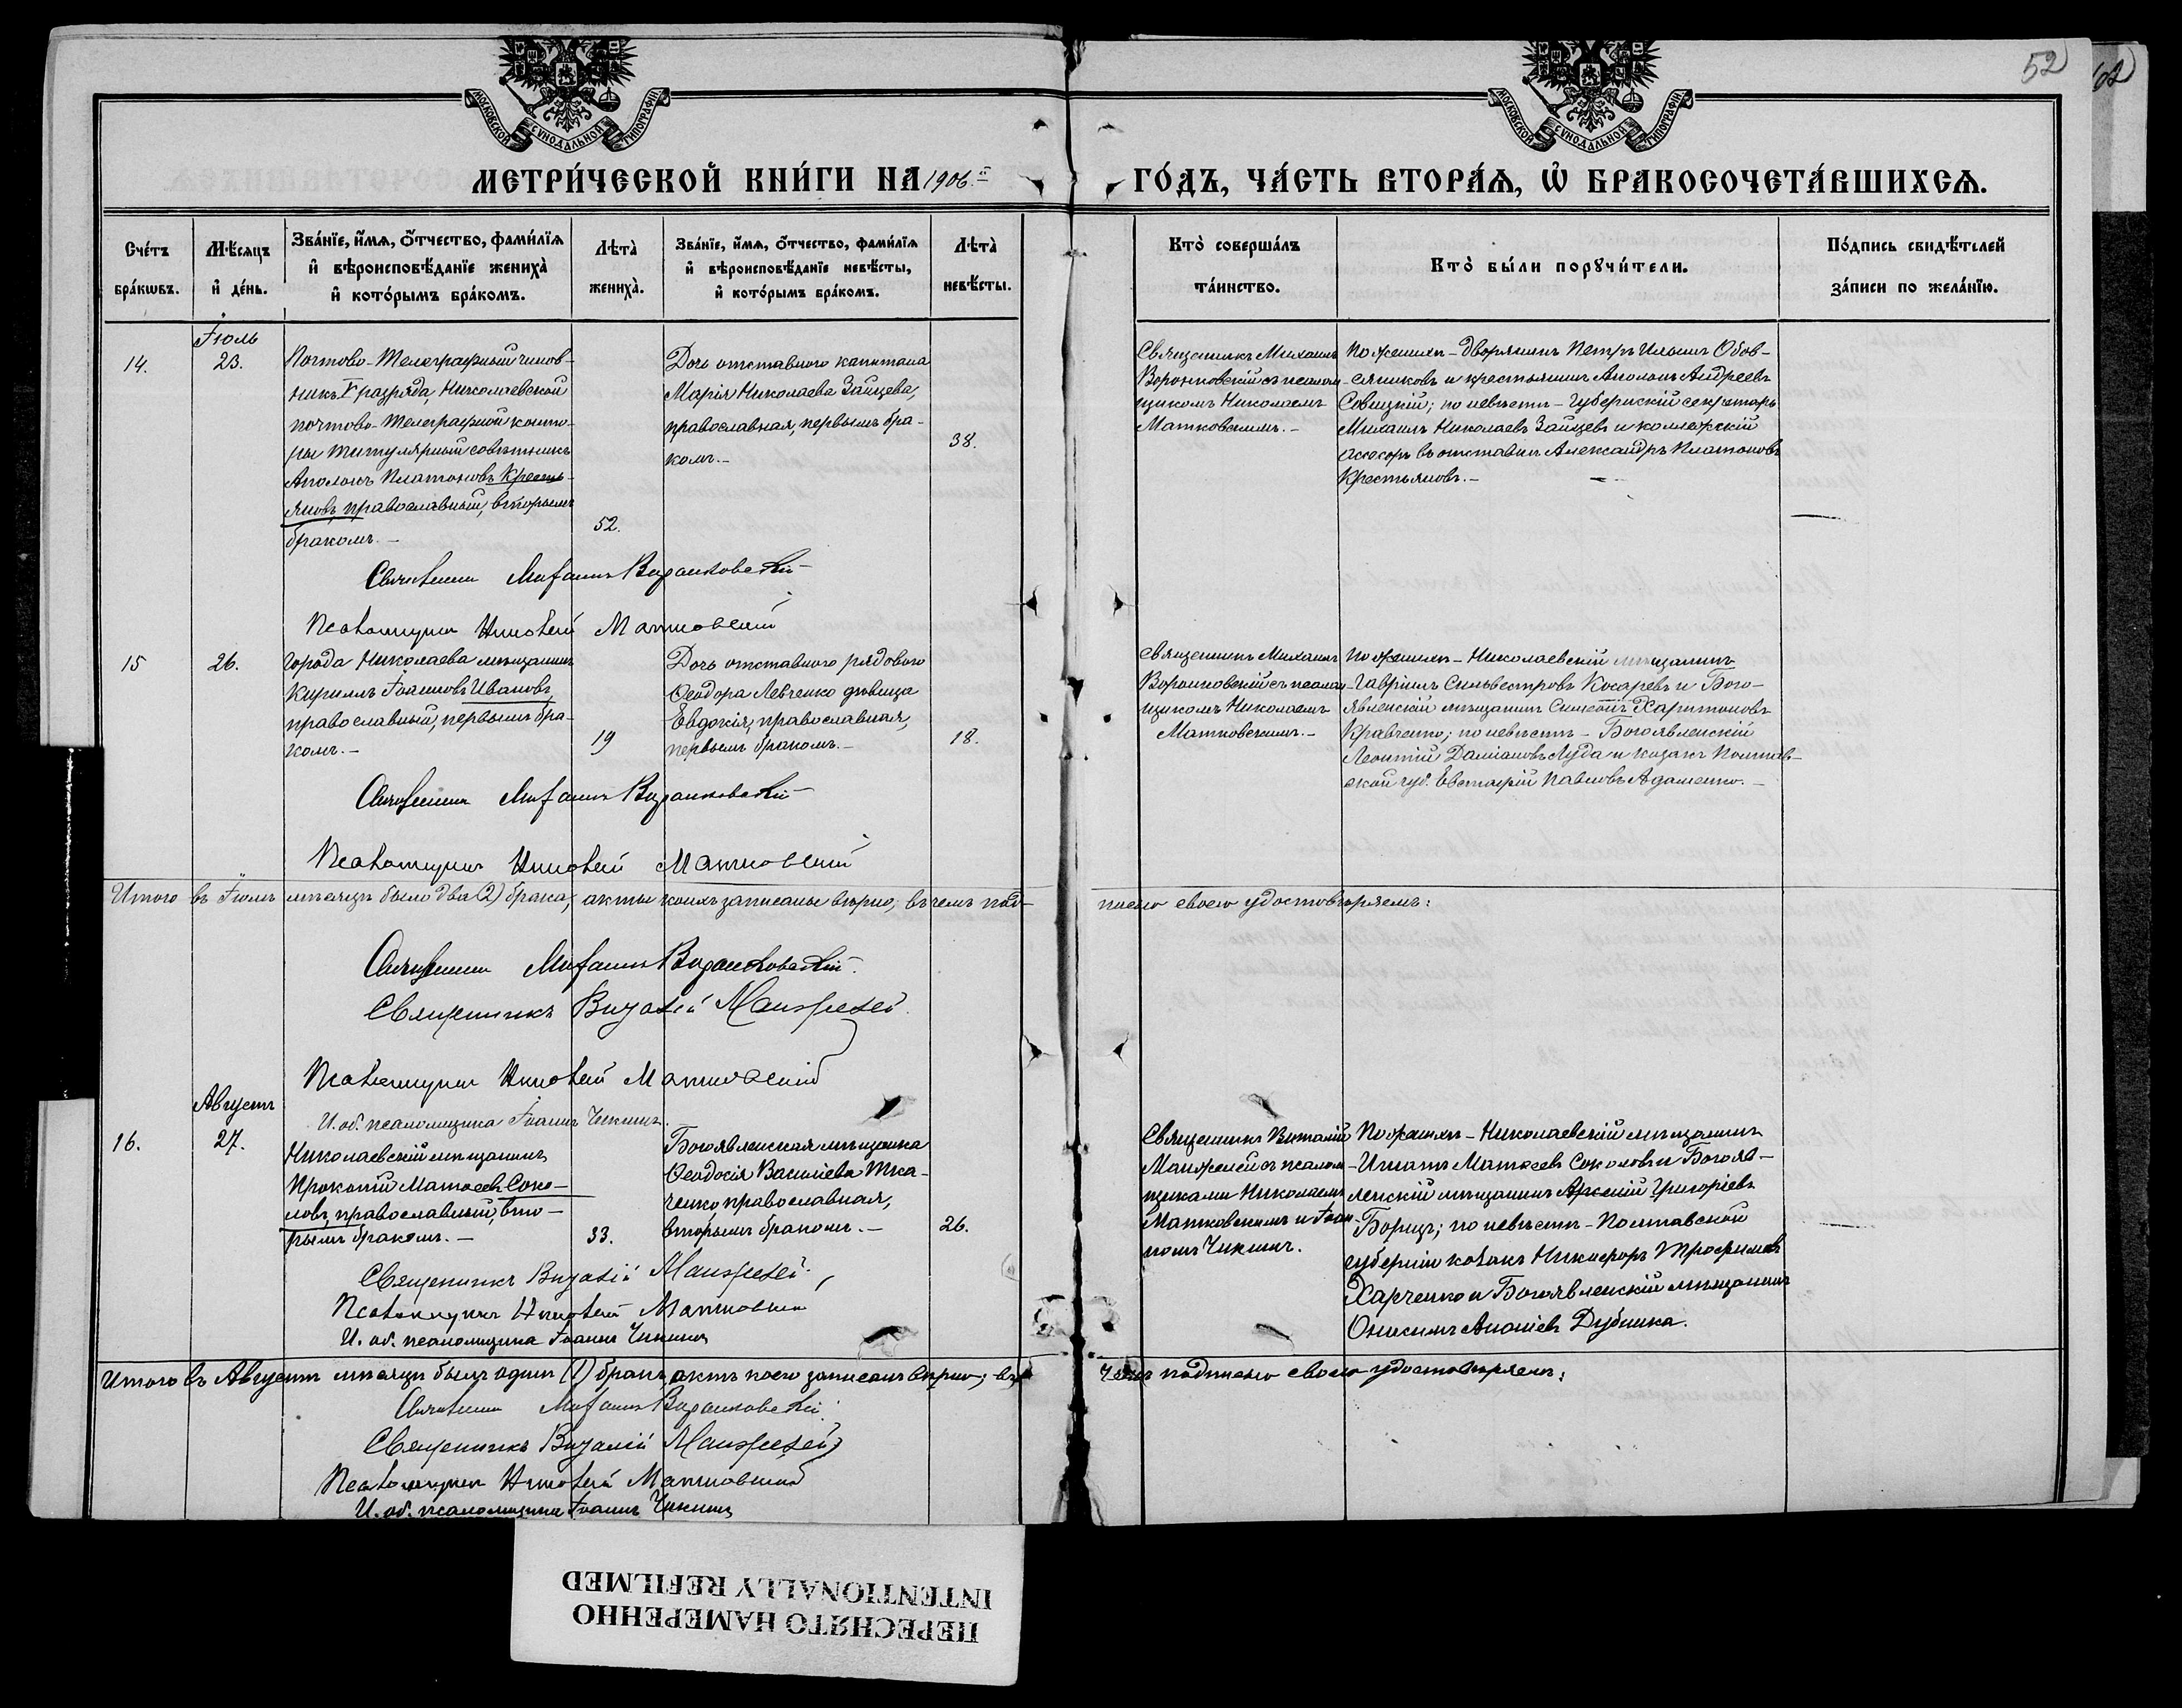 52
МОСКОВСКОЙ СУНОДАЛЬНОЙ ТИПОГРАФІИ
МОСКОВСКОЙ СУНОДАЛЬНОЙ ТИПОГРАФІИ
МЕТРИ́ЧЕСКОЙ КНИ́ГИ НА 1906.й
ГО́ДЪ, ЧА́СТЬ ВТОРА́Ѧ, Ѡ҆ БРАКОСОЧЕТА́ВШИХСѦ.
Счетъ бра́кѡвъ.
Мѣ́сѧцъ и҆ де́нь.
Зва́нїе, и҆́мѧ, ѻ҆́тчество, фами́лїѧ и҆ вѣроисповѣ́данїе жениха̀ и҆ кото́рымъ бра́комъ.
Лѣта̀ жениха̀.
Зва́нїе, и҆́мѧ, ѻ҆́тчество, фами́лїѧ и҆ вѣроисповѣ́данїе невѣ́сты, и҆ кото́рымъ бра́комъ.
Лѣта̀ невѣ́сты.
Кто̀ соверша́лъ та́инство.
Кто̀ бы́ли порꙋчи́тели.
По́дпись свидѣ́телей за́писи по жела́нїю.
Іюль
14.
23.
Почтово-Телеграфный чинов-
никъ V разряда, Николаевской
почтово-Телеграфной конто-
ры титулярный совѣтникъ
Аполонъ Платоновъ Кресть-
яновъ, православный, вторымъ
бракомъ.—
52.
Дочь отставного капитана
Марія Николаева Зайцева,
православная, первымъ бра-
комъ.—
38.
Священникъ Михаилъ
Воронковскій съ псалом-
щикомъ Николаемъ
Матковскимъ.—
По женихѣ - дворянинъ Петръ Ильинъ Обов-
сянниковъ и крестьянинъ Аполонъ Андреевъ
Совицкій; по невѣстѣ - Губернскій секретарь
Михаилъ Николаевъ Зайцевъ и коллежскій
асесоръ въ отставкѣ Александръ Платоновъ
Крестьяновъ.—
Священникъ Михаилъ Воронковскій
Псаломщикъ Николай Матковскій
15
26.
Города Николаева мѣщанинъ
Кириллъ Іоанновъ Ивановъ,
православный, первымъ бра-
комъ.—
19
Дочь отставного рядового
Ѳеодора Левченко дѣвица
Евдокія, православная,
первымъ бракомъ.—
18.
Священникъ Михаилъ
Воронковскій съ псалом-
щикомъ Николаемъ
Матковскимъ.—
По женихѣ - Николаевскій мѣщанинъ
Гавріилъ Сильвестровъ Косаревъ и Бого-
явленскій мѣщанинъ Симеонъ Харитоновъ
Кравченко; по невѣстѣ - Богоявленскій
Леонтій Даміановъ Луда и козакъ Полтав-
ской губ. Евстафій Павловъ Адаменко.—
Священникъ Михаилъ Воронковскій
Псаломщикъ Николай Матковскій
Итого въ Іюлѣ мѣсяцѣ было два (2) брака, акты коихъ записаны вѣрно, въ чемъ под-
писью своею удостовѣряемъ:
Священникъ Михаилъ Воронковскій.
Священникъ Виталій Манжелей
Псаломщикъ Николай Матковскій
И. об. псаломщика Іоаннъ Чикинъ
Августъ
16.
27.
Николаевскій мѣщанинъ
Прокопій Матѳеевъ Соко-
ловъ, православный, вто-
рымъ бракомъ.—
33.
Богоявленская мѣщанка
Ѳеодосія Василіева Тка-
ченко, православная,
вторымъ бракомъ.—
26.
Священникъ Виталій
Манжелей съ псалом-
щиками Николаемъ
Матковскимъ и Іоан-
номъ Чикинъ.
По женихѣ - Николаевскій мѣщанинъ
Игнатъ Матѳеевъ Соколовъ и Богояв-
ленскій мѣщанинъ Арсеній Григоріевъ
Борищъ; по невѣстѣ - Полтавской
губерніи козакъ Никифоръ Трофимовъ
Харченко и Богоявленскій мѣщанинъ
Онисимъ Ананіевъ Дубинка.
Священникъ Виталій Манжелей
Псаломщикъ Николай Матковскій
И. об. псаломщика Іоаннъ Чикинъ
Итого въ Августѣ мѣсяцѣ былъ одинъ (1) бракъ, актъ коего записанъ вѣрно, въ
чемъ подписью своею удостовѣряемъ:
Священникъ Михаилъ Воронковскій
Священникъ Виталій Манжелей
Псаломщикъ Николай Матковскій
И. об. псаломщика Іоаннъ Чикинъ
ПЕРЕСНЯТО НАМЕРЕННО
INTENTIONALLY REFILMED